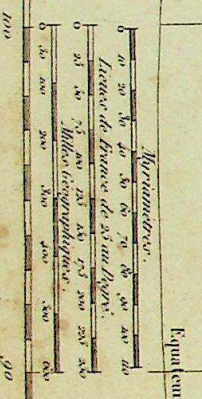 Myriamètres.
0 10 20 30 40 50 60 70 80 90 100 110
Lieues de France de 25 au Degré.
0 25 50 75 100 125 150 175 200 225 250
Milles Géographiques.
0 50 100 200 300 400 500 600
Equateur
100 90